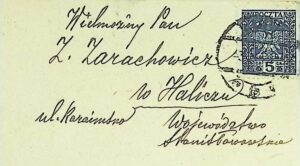 Wielmożny Pan
Z. Zarachowicz
w Haliczu
ul. Karaimska
Województwo
Stanisławowskie
5